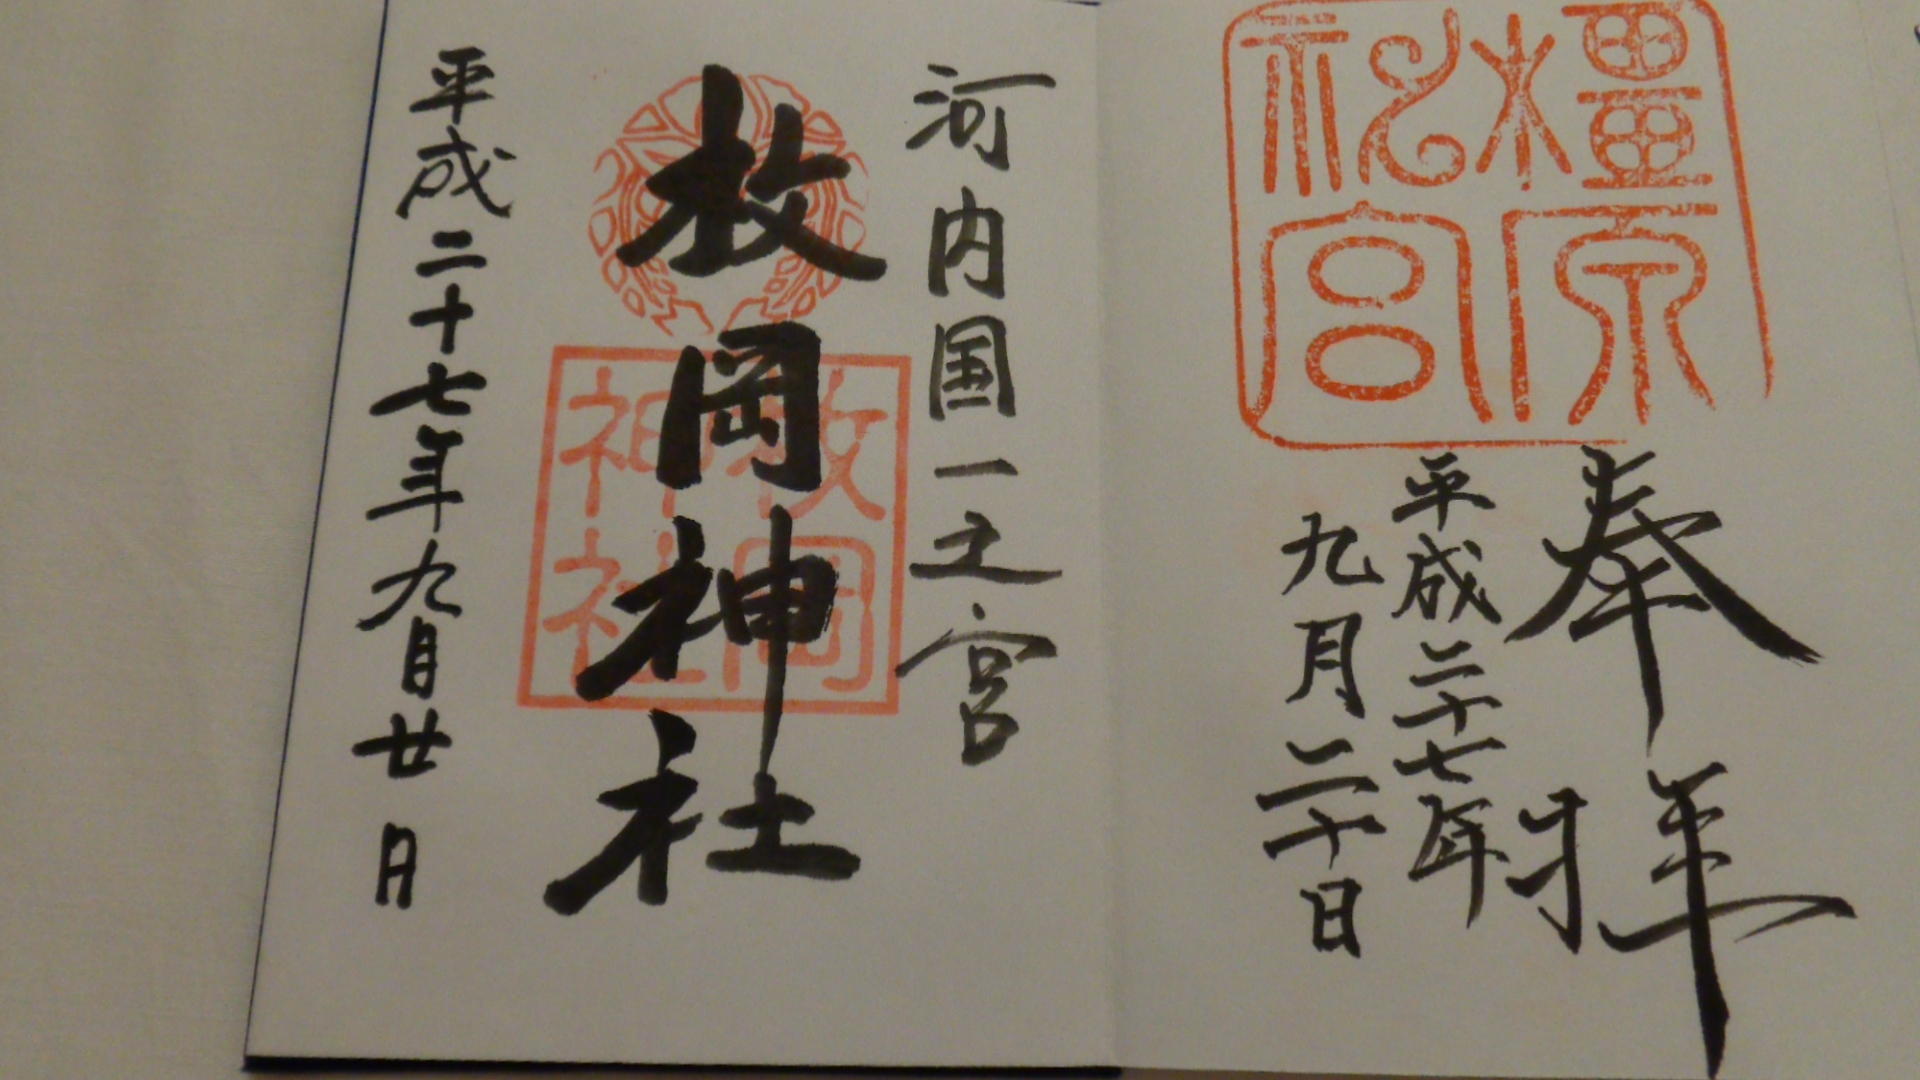 橿原
神宮
奉拝
平成二十七年
九月二十日
河内国一之宮
枚岡神社
枚岡
神社
平成二十七年九月廿日